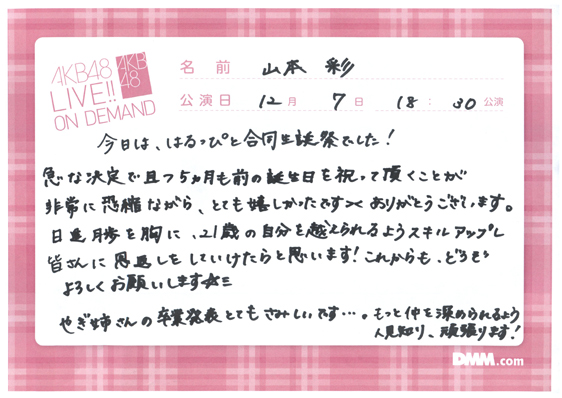 AKB48
LIVE!!
ON DEMAND
AKB
48
名前 山本 彩
公演日 12月 7日 18:30公演
今日は、はるっぴと合同生誕祭でした!
急な決定で且つ5ヵ月も前の誕生日を祝って頂くことが
非常に恐縮ながら、とても嬉しかったです>< ありがとうございます。
日進月歩を胸に、21歳の自分を越えられるようスキルアップし
皆さんに恩返しをしていけたらと思います!これからも、どうぞ
よろしくお願いします☆ミ
やぎ姉さんの卒業発表とてもさみしいです…。もっと仲を深められるよう
人見知り、頑張ります!
DMM.com